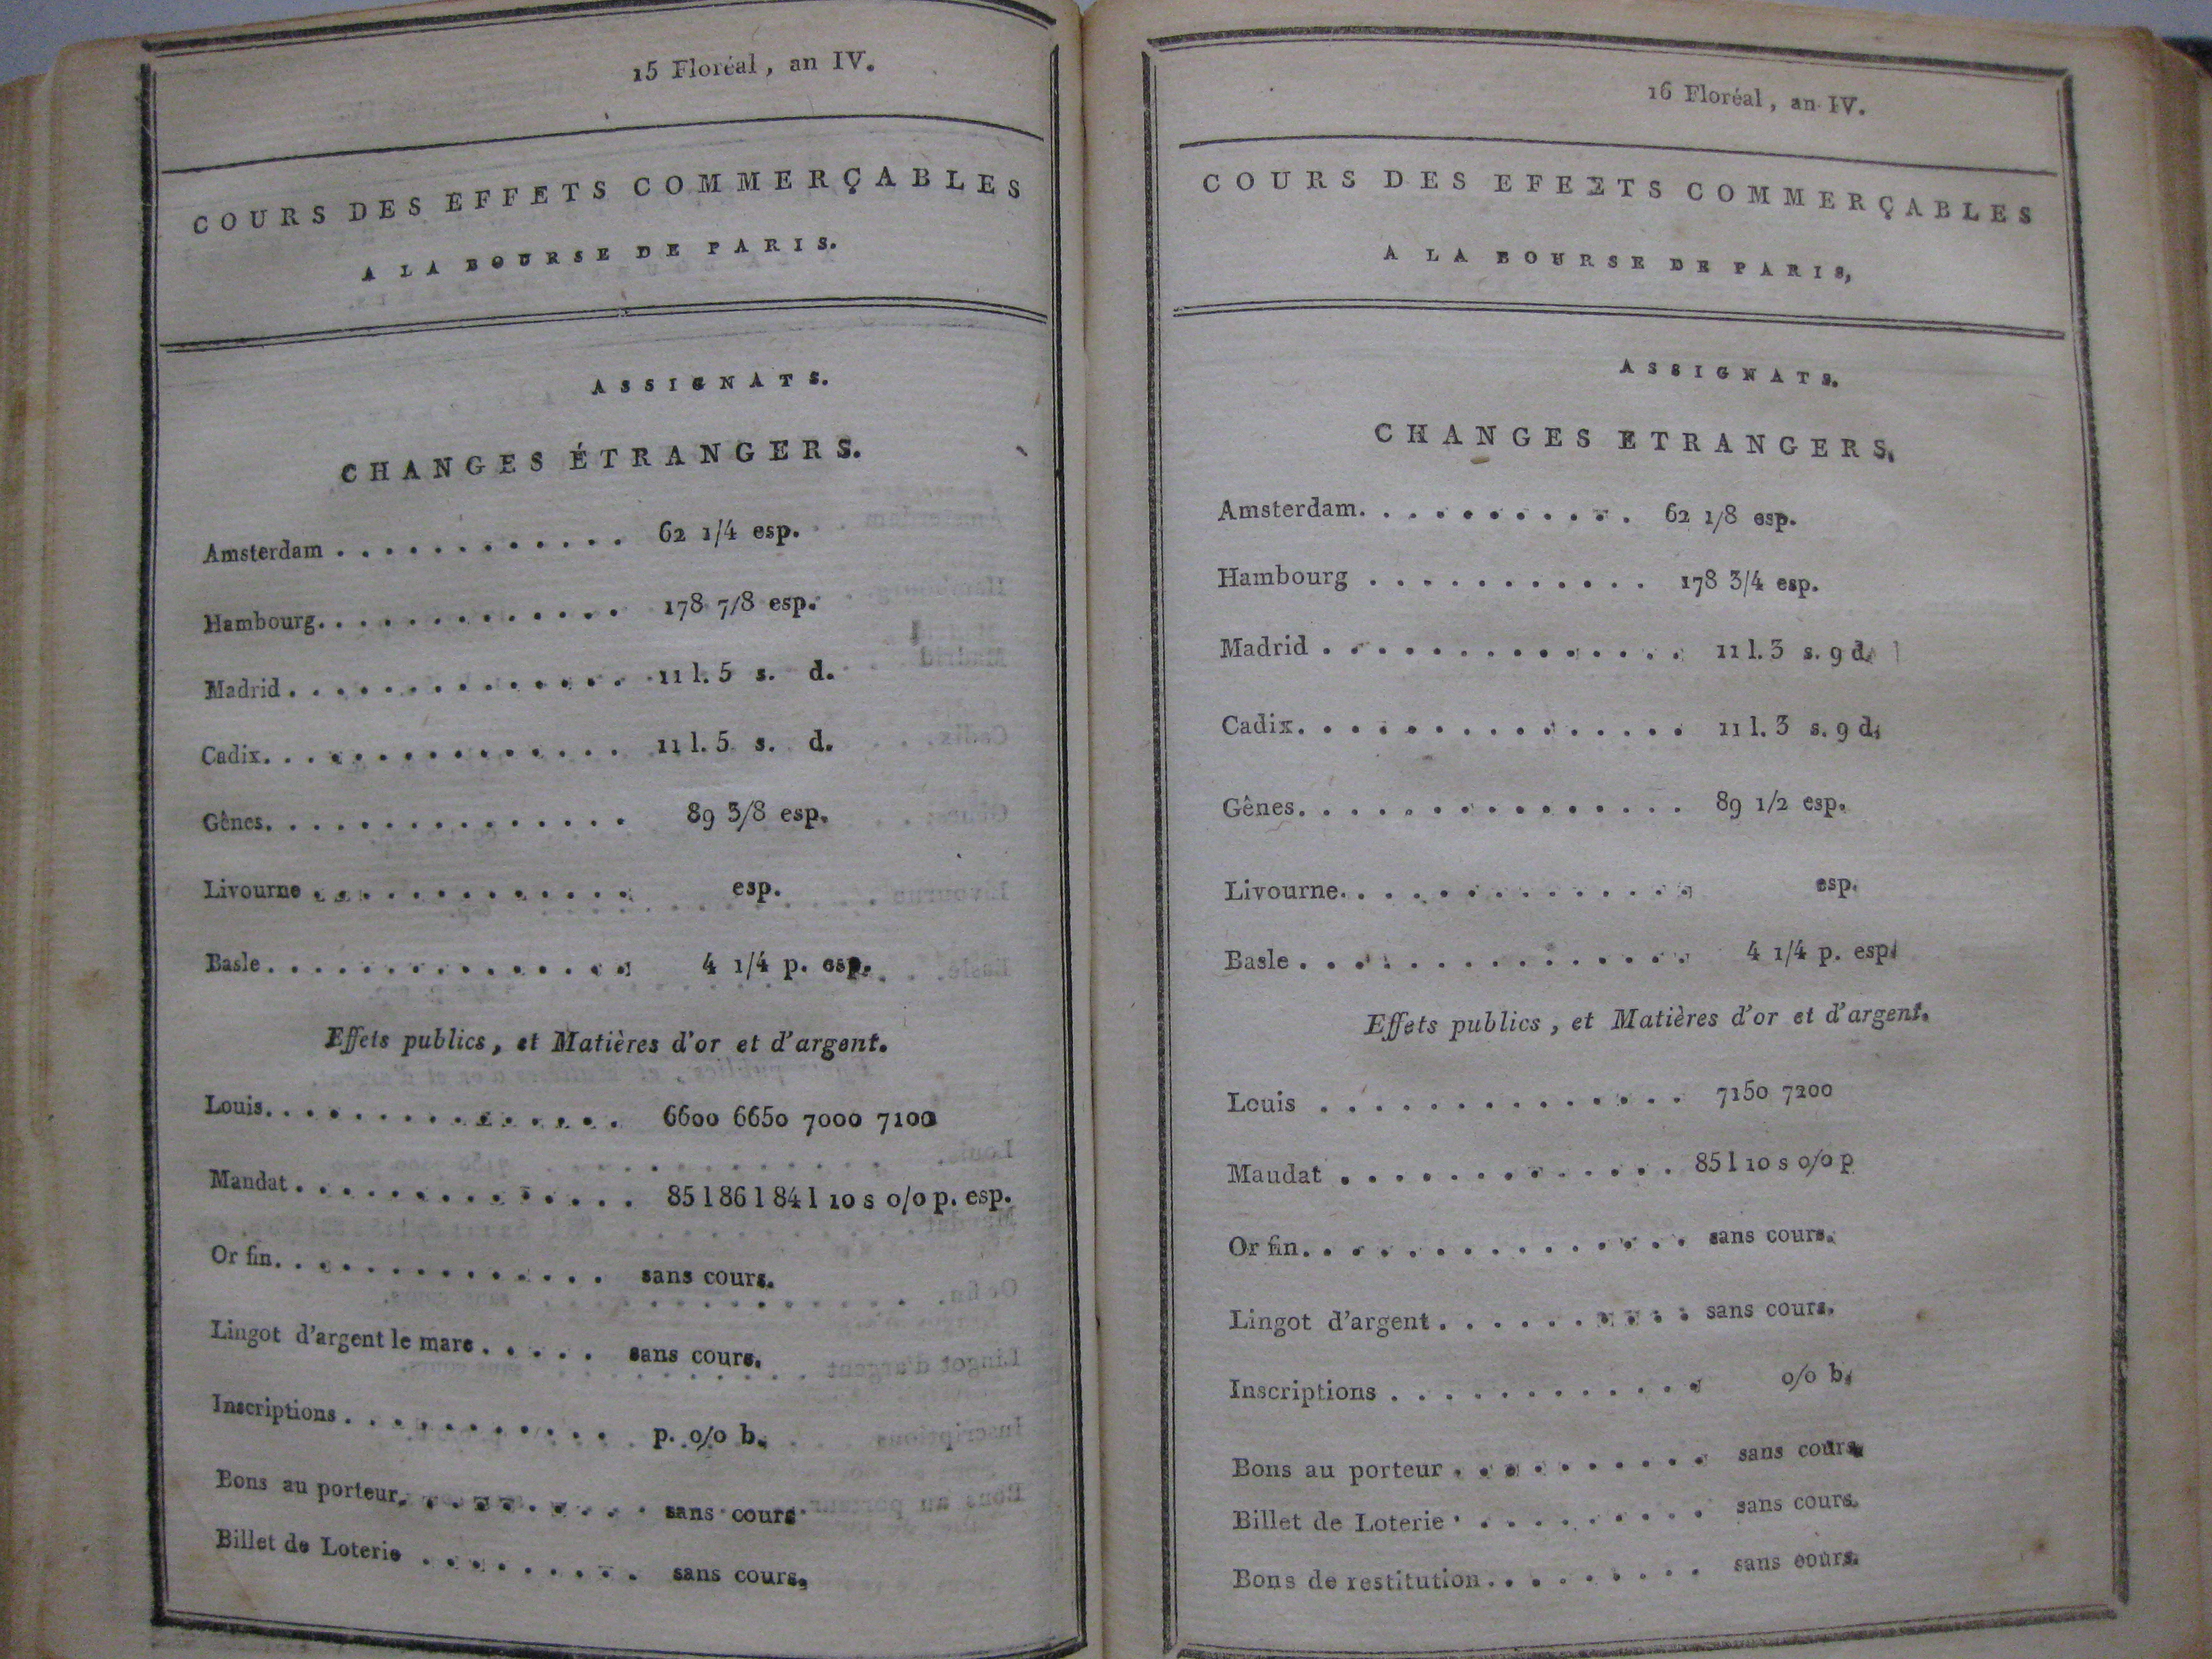 15 Floréal, an IV.
COURS DES EFFETS COMMERÇABLES
A LA BOURSE DE PARIS.
ASSIGNATS.
CHANGES ÉTRANGERS.
Amsterdam . . . . . . . . . . . . 62 1/4 esp.
Hambourg. . . . . . . . . . . . . 178 7/8 esp.
Madrid . . . . . . . . . . . . . . 11 l. 5 s. d.
Cadix. . . . . . . . . . . . . . . 11 l. 5 s. d.
Gênes. . . . . . . . . . . . . . . 89 3/8 esp.
Livourne . . . . . . . . . . . . . esp.
Basle . . . . . . . . . . . . . . . 4 1/4 p. esp.
Effets publics, et Matières d'or et d'argent.
Louis. . . . . . . . . . . . . . . 6600 6650 7000 7100
Mandat . . . . . . . . . . . . . . 85 l 86 l 84 l 10 s 0/0 p. esp.
Or fin. . . . . . . . . . . . . . . sans cours.
Lingot d'argent le marc . . . . . sans cours.
Inscriptions . . . . . . . . . . . p. 0/0 b.
Bons au porteur. . . . . . . . . . sans cours
Billet de Loterie . . . . . . . . . sans cours.
16 Floréal, an IV.
COURS DES EFEETS COMMERÇABLES
A LA BOURSE DE PARIS,
ASSIGNATS.
CHANGES ETRANGERS.
Amsterdam. . . . . . . . . . . . 62 1/8 esp.
Hambourg . . . . . . . . . . . 178 3/4 esp.
Madrid . . . . . . . . . . . . . . 11 l. 3 s. 9 d.
Cadix. . . . . . . . . . . . . . . 11 l. 3 s. 9 d.
Gênes. . . . . . . . . . . . . . . 89 1/2 esp.
Livourne. . . . . . . . . . . . . . esp.
Basle . . . . . . . . . . . . . . . 4 1/4 p. esp.
Effets publics, et Matières d'or et d'argent.
Louis . . . . . . . . . . . . . . 7150 7200
Maudat . . . . . . . . . . . . . 85 l 10 s 0/0 p
Or fin. . . . . . . . . . . . . . . sans cours.
Lingot d'argent . . . . . . . . . . sans cours.
Inscriptions . . . . . . . . . . . . 0/0 b.
Bons au porteur . . . . . . . . . . sans cours.
Billet de Loterie . . . . . . . . . . sans cours.
Bons de restitution . . . . . . . . . sans cours.